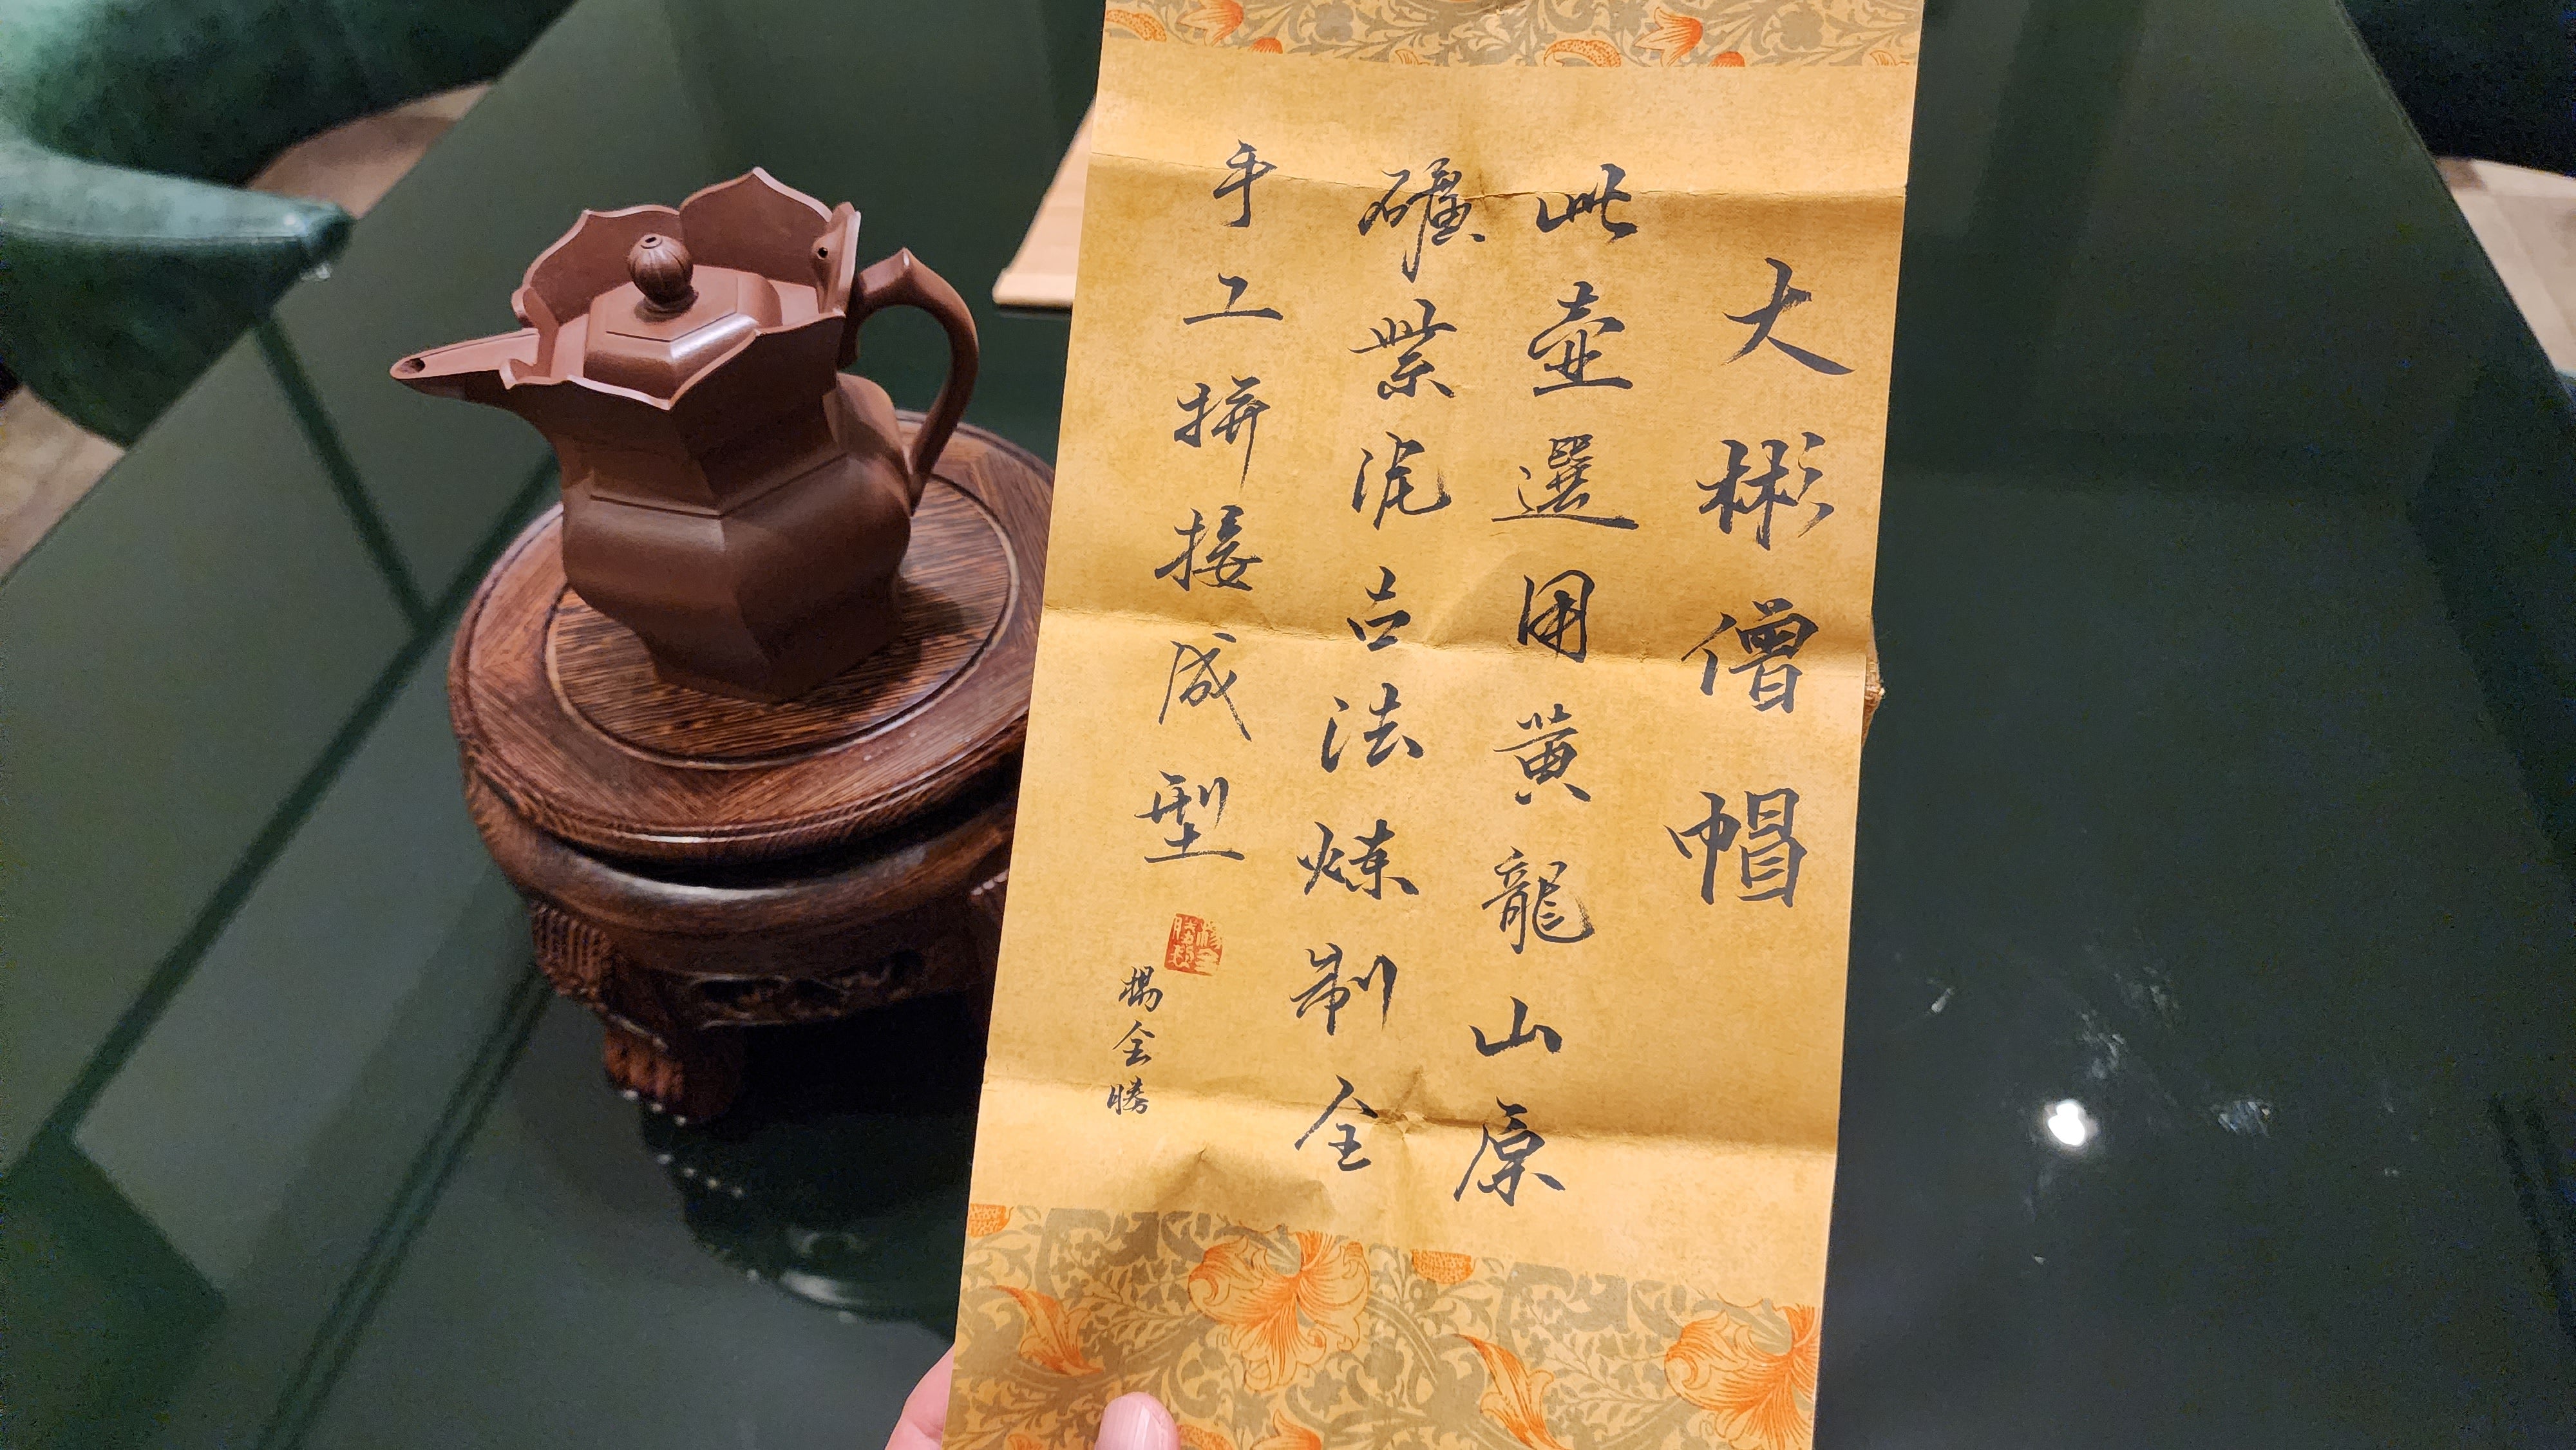 大彬僧帽
此壶選用黄龍山原
礦紫泥古法炼制全
手工拼接成型
楊全勝